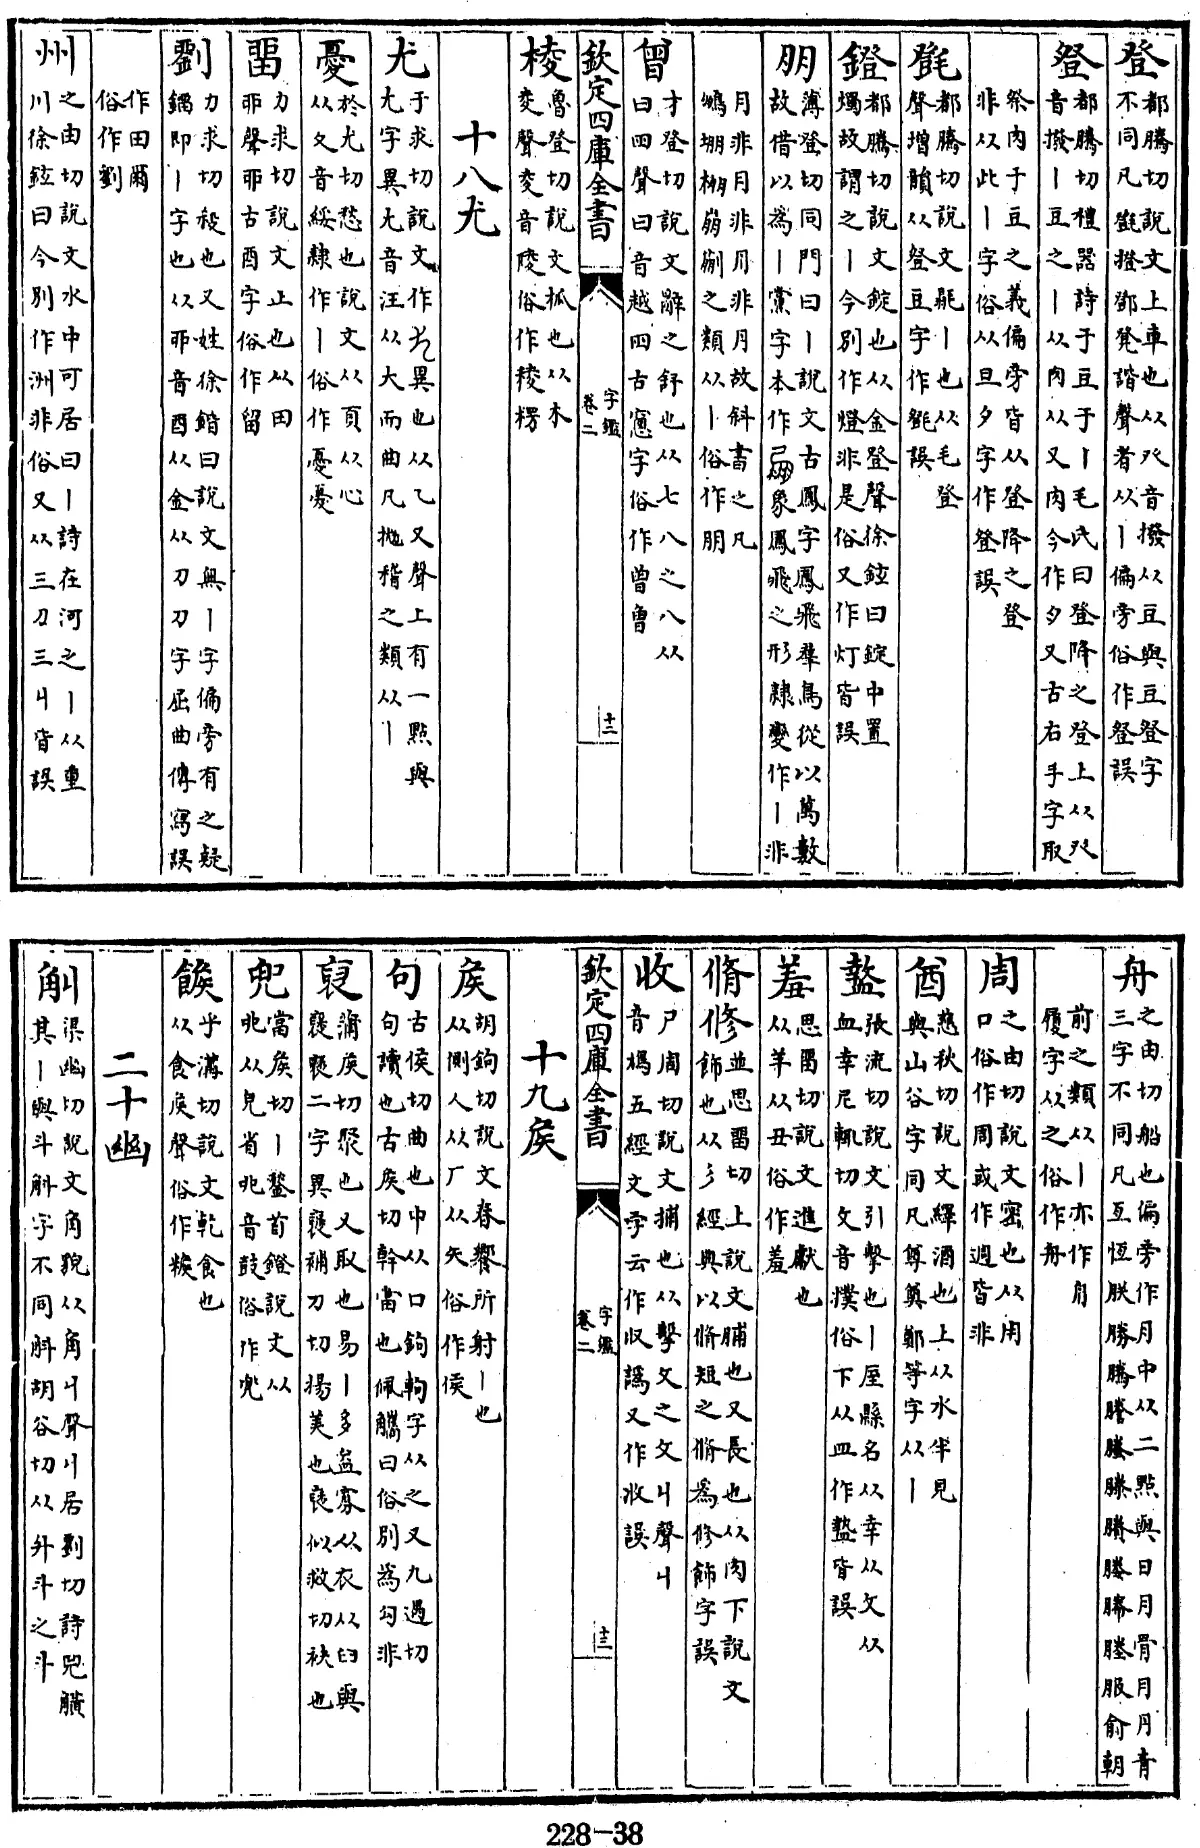 登都騰切說文上車也从癶音撥从豆與豆豋字不同凡㲪橙鄧凳諧聲者从丨偏旁俗作豋誤
豋都騰切禮器詩于豆于丨毛氏曰登降之登上从癶音撥丨豆之丨从肉从又肉今作夕又古右手字取
祭肉于豆之義偏旁皆从登降之登非从此丨字俗从旦夕字作豋誤
㲪都騰切說文㲪丨也从毛登聲增韻从豋豆字作㲪誤
鐙都騰切說文錠也从金登聲徐鉉曰錠中置燭故謂之丨今別作燈非是俗又作灯皆誤
朋薄登切同門曰丨說文古鳳字鳳飛羣鳥從以萬數故借以為丨黨字本作象鳳飛之形隸變作丨非
月非月非月非月故斜書之凡鵬堋棚崩㔙之類从丨俗作朋
曾才登切說文辭之舒也从七八之八从曰四聲曰音越四古窻字俗作曽曾
欽定四庫全書
字鑑
卷二
十二
棱魯登切說文柧也从木夌聲夌音陵俗作稜楞
十八尤
尤于求切說文作異也从乙又聲上有一點與尢字異尢音汪从大而曲凡拋稽之類从丨
憂於尤切愁也說文从頁从心从夊音綏隸作丨俗作憂憂
畱力求切說文止也从田丣聲丣古酉字俗作留
劉力求切殺也又姓徐鍇曰說文無丨字偏旁有之疑鐂即丨字也从丣音酉从金从刀刀字屈曲傳寫誤
作田爾俗作刘
州之由切說文水中可居曰丨詩在河之丨从重川徐鉉曰今別作洲非俗又从三刀三丩皆誤
舟之由切船也偏旁作月中从二點與日月骨月丹青三字不同凡亙恆朕勝騰謄塍滕賸縢幐螣服俞朝
前之類从丨亦作⺼履字从之俗作舟
周之由切說文密也从用口俗作周或作週皆非
酋慈秋切說文繹酒也上从水半見與山谷字同凡尊奠鄭等字从丨
盩張流切說文引擊也丨厔縣名从幸从攵从血幸尼輒切攵音撲俗下从皿作盩皆誤
羞思畱切說文進獻也从羊从丑俗作羞
脩修並思畱切上說文脯也又長也从肉下說文飾也从彡經典以脩短之脩為修飾字誤
收尸周切說文捕也从擊攵之攵丩聲丩音樛五經文字云作収譌又作收誤
欽定四庫全書
字鑑
卷二
十三
十九矦
矦胡鉤切說文春饗所射丨也从側人从厂从矢俗作侯
句古侯切曲也中从口鉤軥字从之又九遇切句讀也古矦切幹當也佩觽曰俗別為勾非
裒蒲矦切聚也又取也易丨多益寡从衣从臼與襃褎二字異襃補刀切揚美也褎似救切袂也
兜當矦切丨鍪首鎧說文从𠑹从皃省𠑹音鼓俗作兠
餱乎溝切說文乾食也从食矦聲俗作糇
二十幽
觓渠幽切說文角貌从角丩聲丩居虯切詩兕觵其丨與斗斛字不同斛胡谷切从升斗之斗
228-38